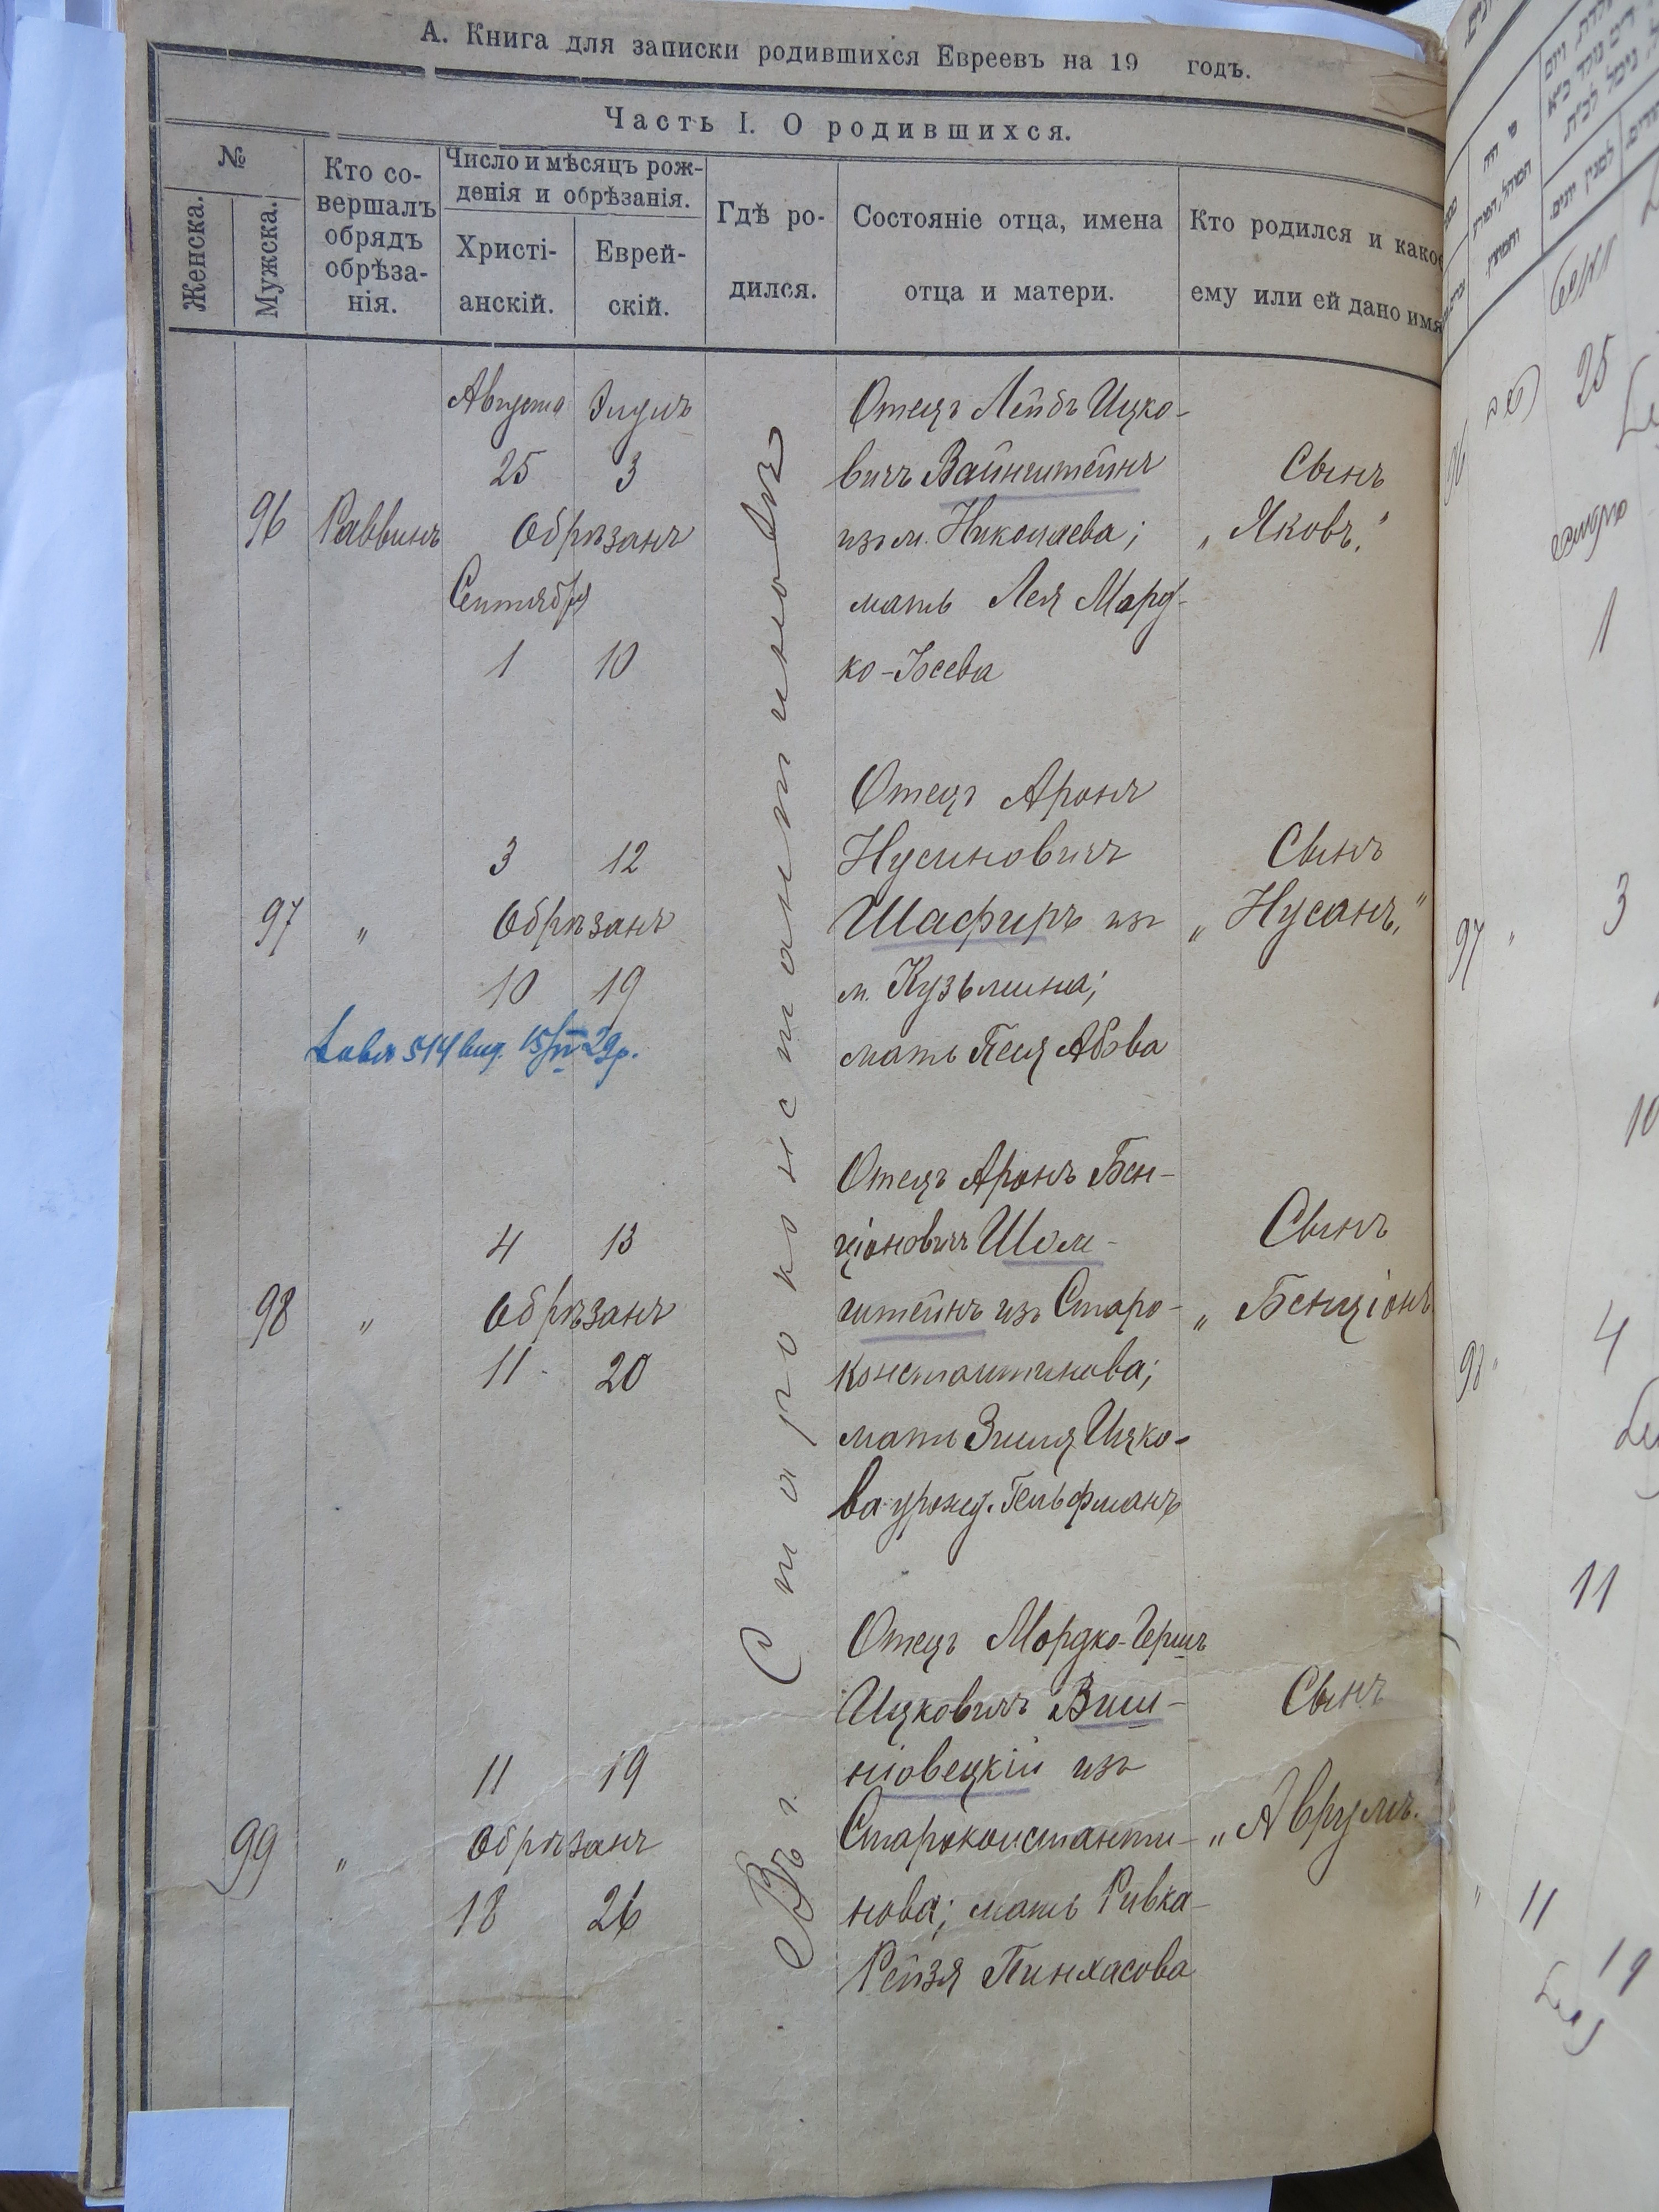 А. Книга для записки родившихся Евреевъ на 19 годъ.
Часть I. О родившихся.
№
Женска.
Мужска.
Кто со-
вершалъ
обрядъ
обрѣза-
нія.
Число и мѣсяцъ рож-
денія и обрѣзанія.
Христі-
анскій.
Еврей-
скій.
Гдѣ ро-
дился.
Состояніе отца, имена
отца и матери.
Кто родился и какое
ему или ей дано имя
Въ г. Староконстантиновѣ
96
Раввинъ
Августа Элулъ
25 3
Обрѣзанъ
Сентября
1 10
Отецъ Лейбъ Ицко-
вичъ Вайнштейнъ
изъ м. Николаева;
мать Лея Мард-
ко-Іосева
Сынъ
„Яковъ.“
97
„
3 12
Обрѣзанъ
10 19
514 15/IV 29р.
Отецъ Аронъ
Нусиновичъ
Шафиръ изъ
м. Кузьмина;
мать Песя Абова
Сынъ
„Нусанъ.“
98
„
4 13
Обрѣзанъ
11 20
Отецъ Аронъ Бен-
ціоновичъ Шом-
штейнъ изъ Старо-
константинова;
мать Зисля Ицко-
ва урожд. Гельфманъ
Сынъ
„Бенціонъ
99
„
11 19
Обрѣзанъ
18 26
Отецъ Мордко-Гершъ
Ицковичъ Виш-
ніовецкій изъ
Староконстанти-
нова; мать Ривка-
Рейзя Пинхасова
Сынъ
„Аврумъ.
96
25
1
97
3
10
98
4
11
11
19